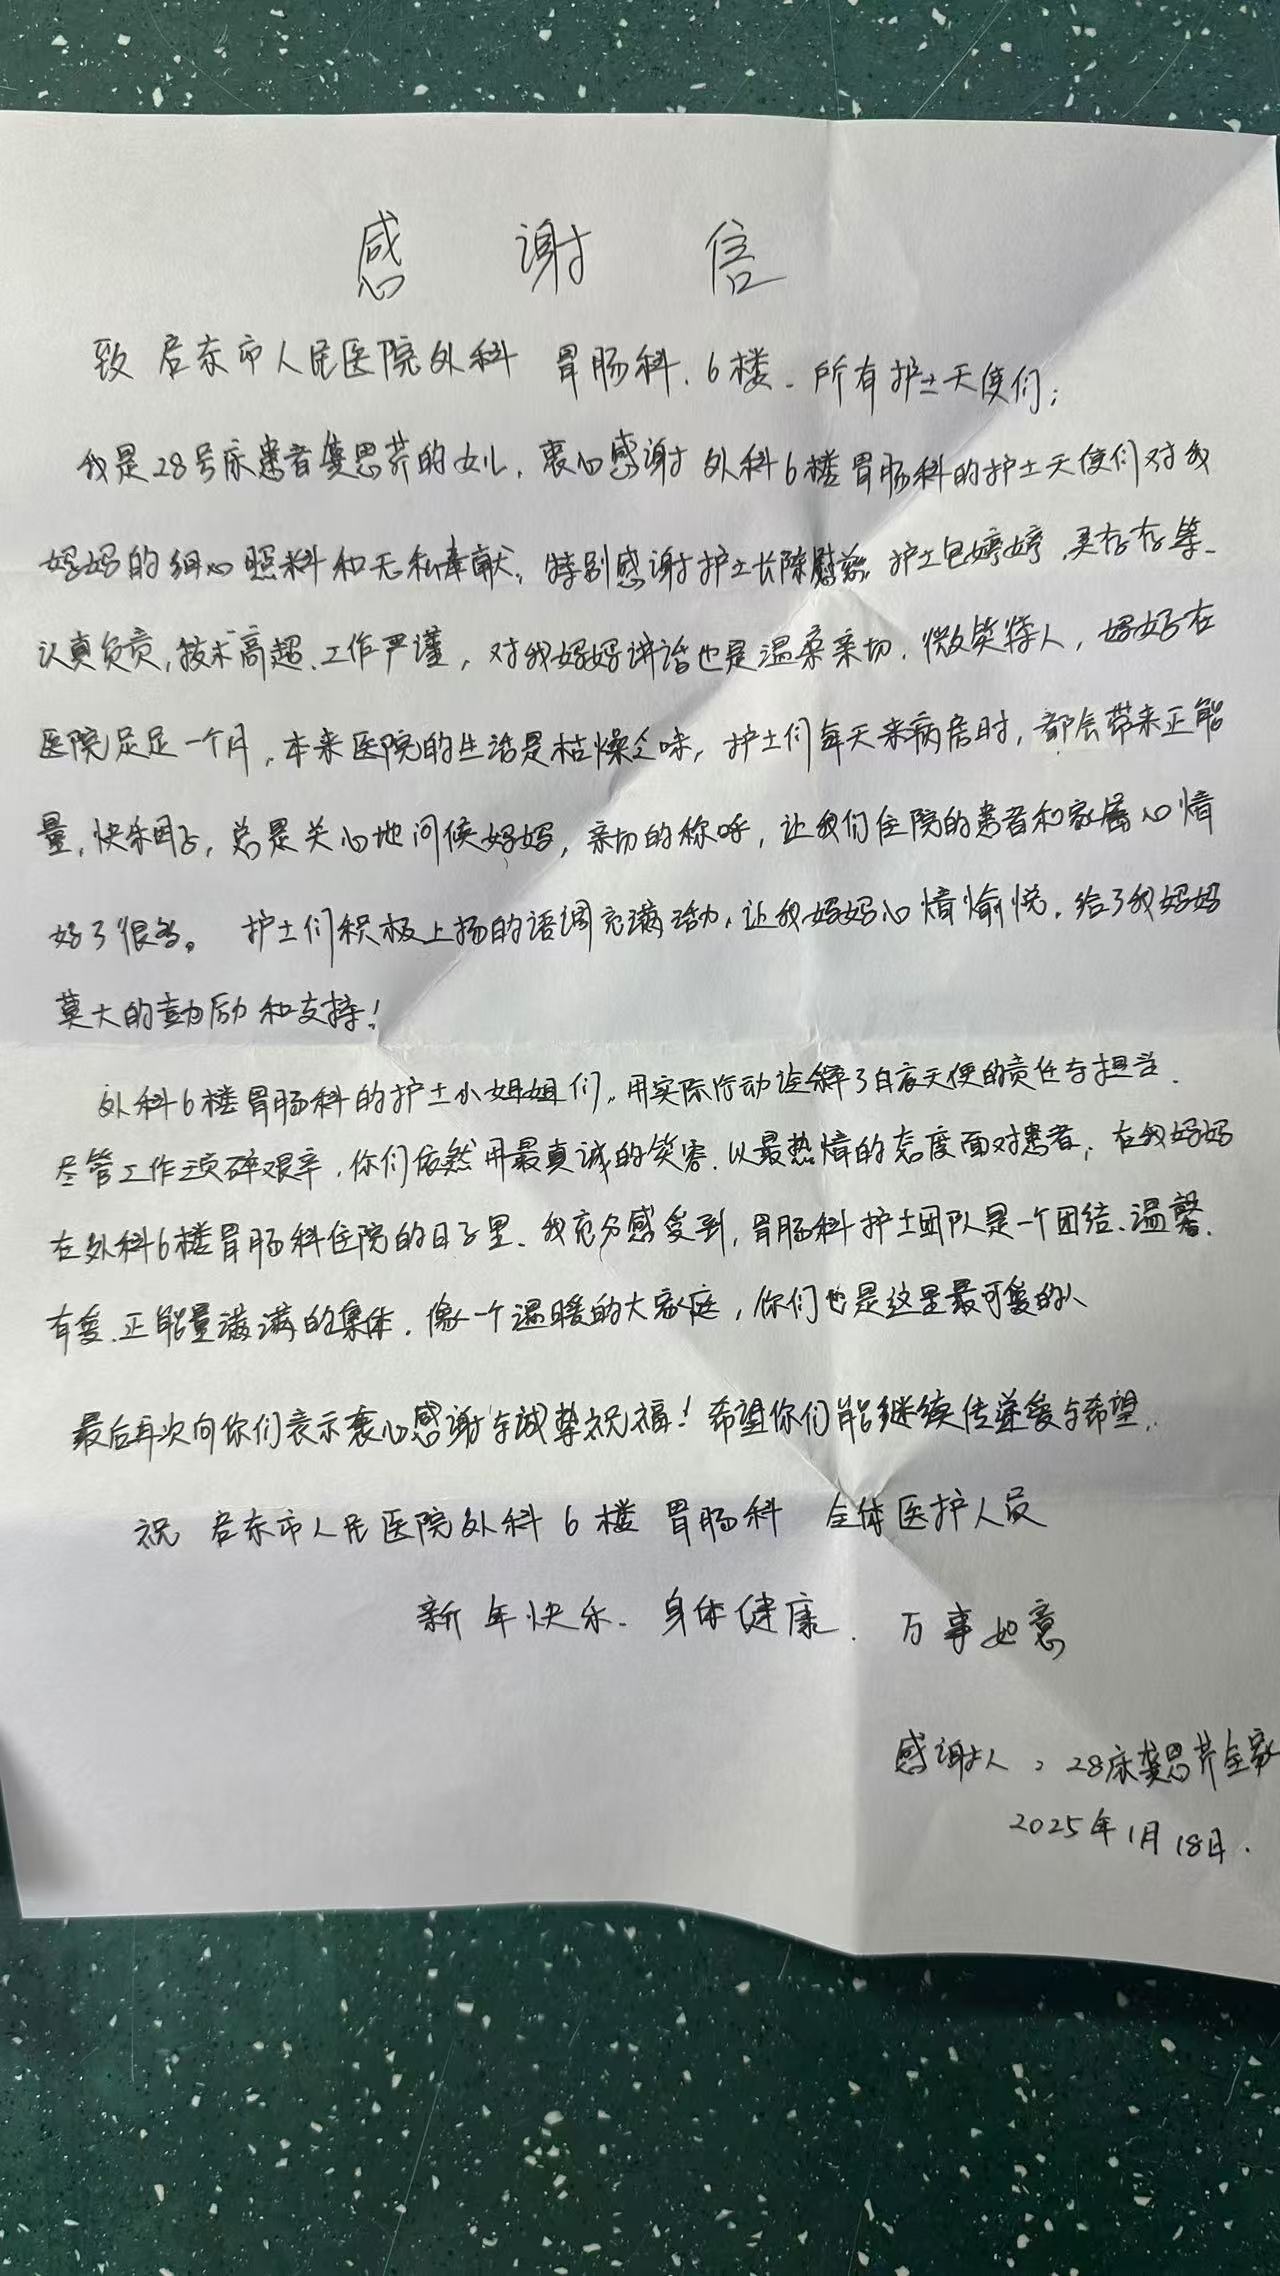 感谢信
致 启东市人民医院外科 胃肠科、6楼、所有护士天使们：
我是28号床患者龚思芹的女儿，衷心感谢 外科6楼胃肠科的护士天使们对我
妈妈的细心照料和无私奉献。特别感谢护士长陈 护士包婷婷、 等、
认真负责，技术高超、工作严谨，对我妈妈讲话也是温柔亲切、微笑待人，妈妈在
医院足足一个月，本来医院的生活是枯燥乏味，护士们每天来病房时，都会带来正能
量，快乐因子，总是关心地问候妈妈，亲切的称呼，让我们住院的患者和家属心情
好了很多。 护士们积极上扬的语调充满活力，让我妈妈心情愉悦，给了我妈妈
莫大的鼓励和支持！
外科6楼胃肠科的护士小姐姐们，用实际行动诠释了白衣天使的责任与担当．
尽管工作琐碎艰辛，你们依然用最真诚的笑容、以最热情的态度面对患者，在我妈妈
在外科6楼胃肠科住院的日子里、我充分感受到，胃肠科护士团队是一个团结、温馨、
有爱、正能量满满的集体，像一个温暖的大家庭，你们也是这里最可爱的人
最后再次向你们表示衷心感谢与诚挚祝福！希望你们能继续传递爱与希望．
祝 启东市人民医院外科6楼 胃肠科 全体医护人员
新年快乐、身体健康、万事如意
感谢人：28床龚思芹全家
2025年1月18日．